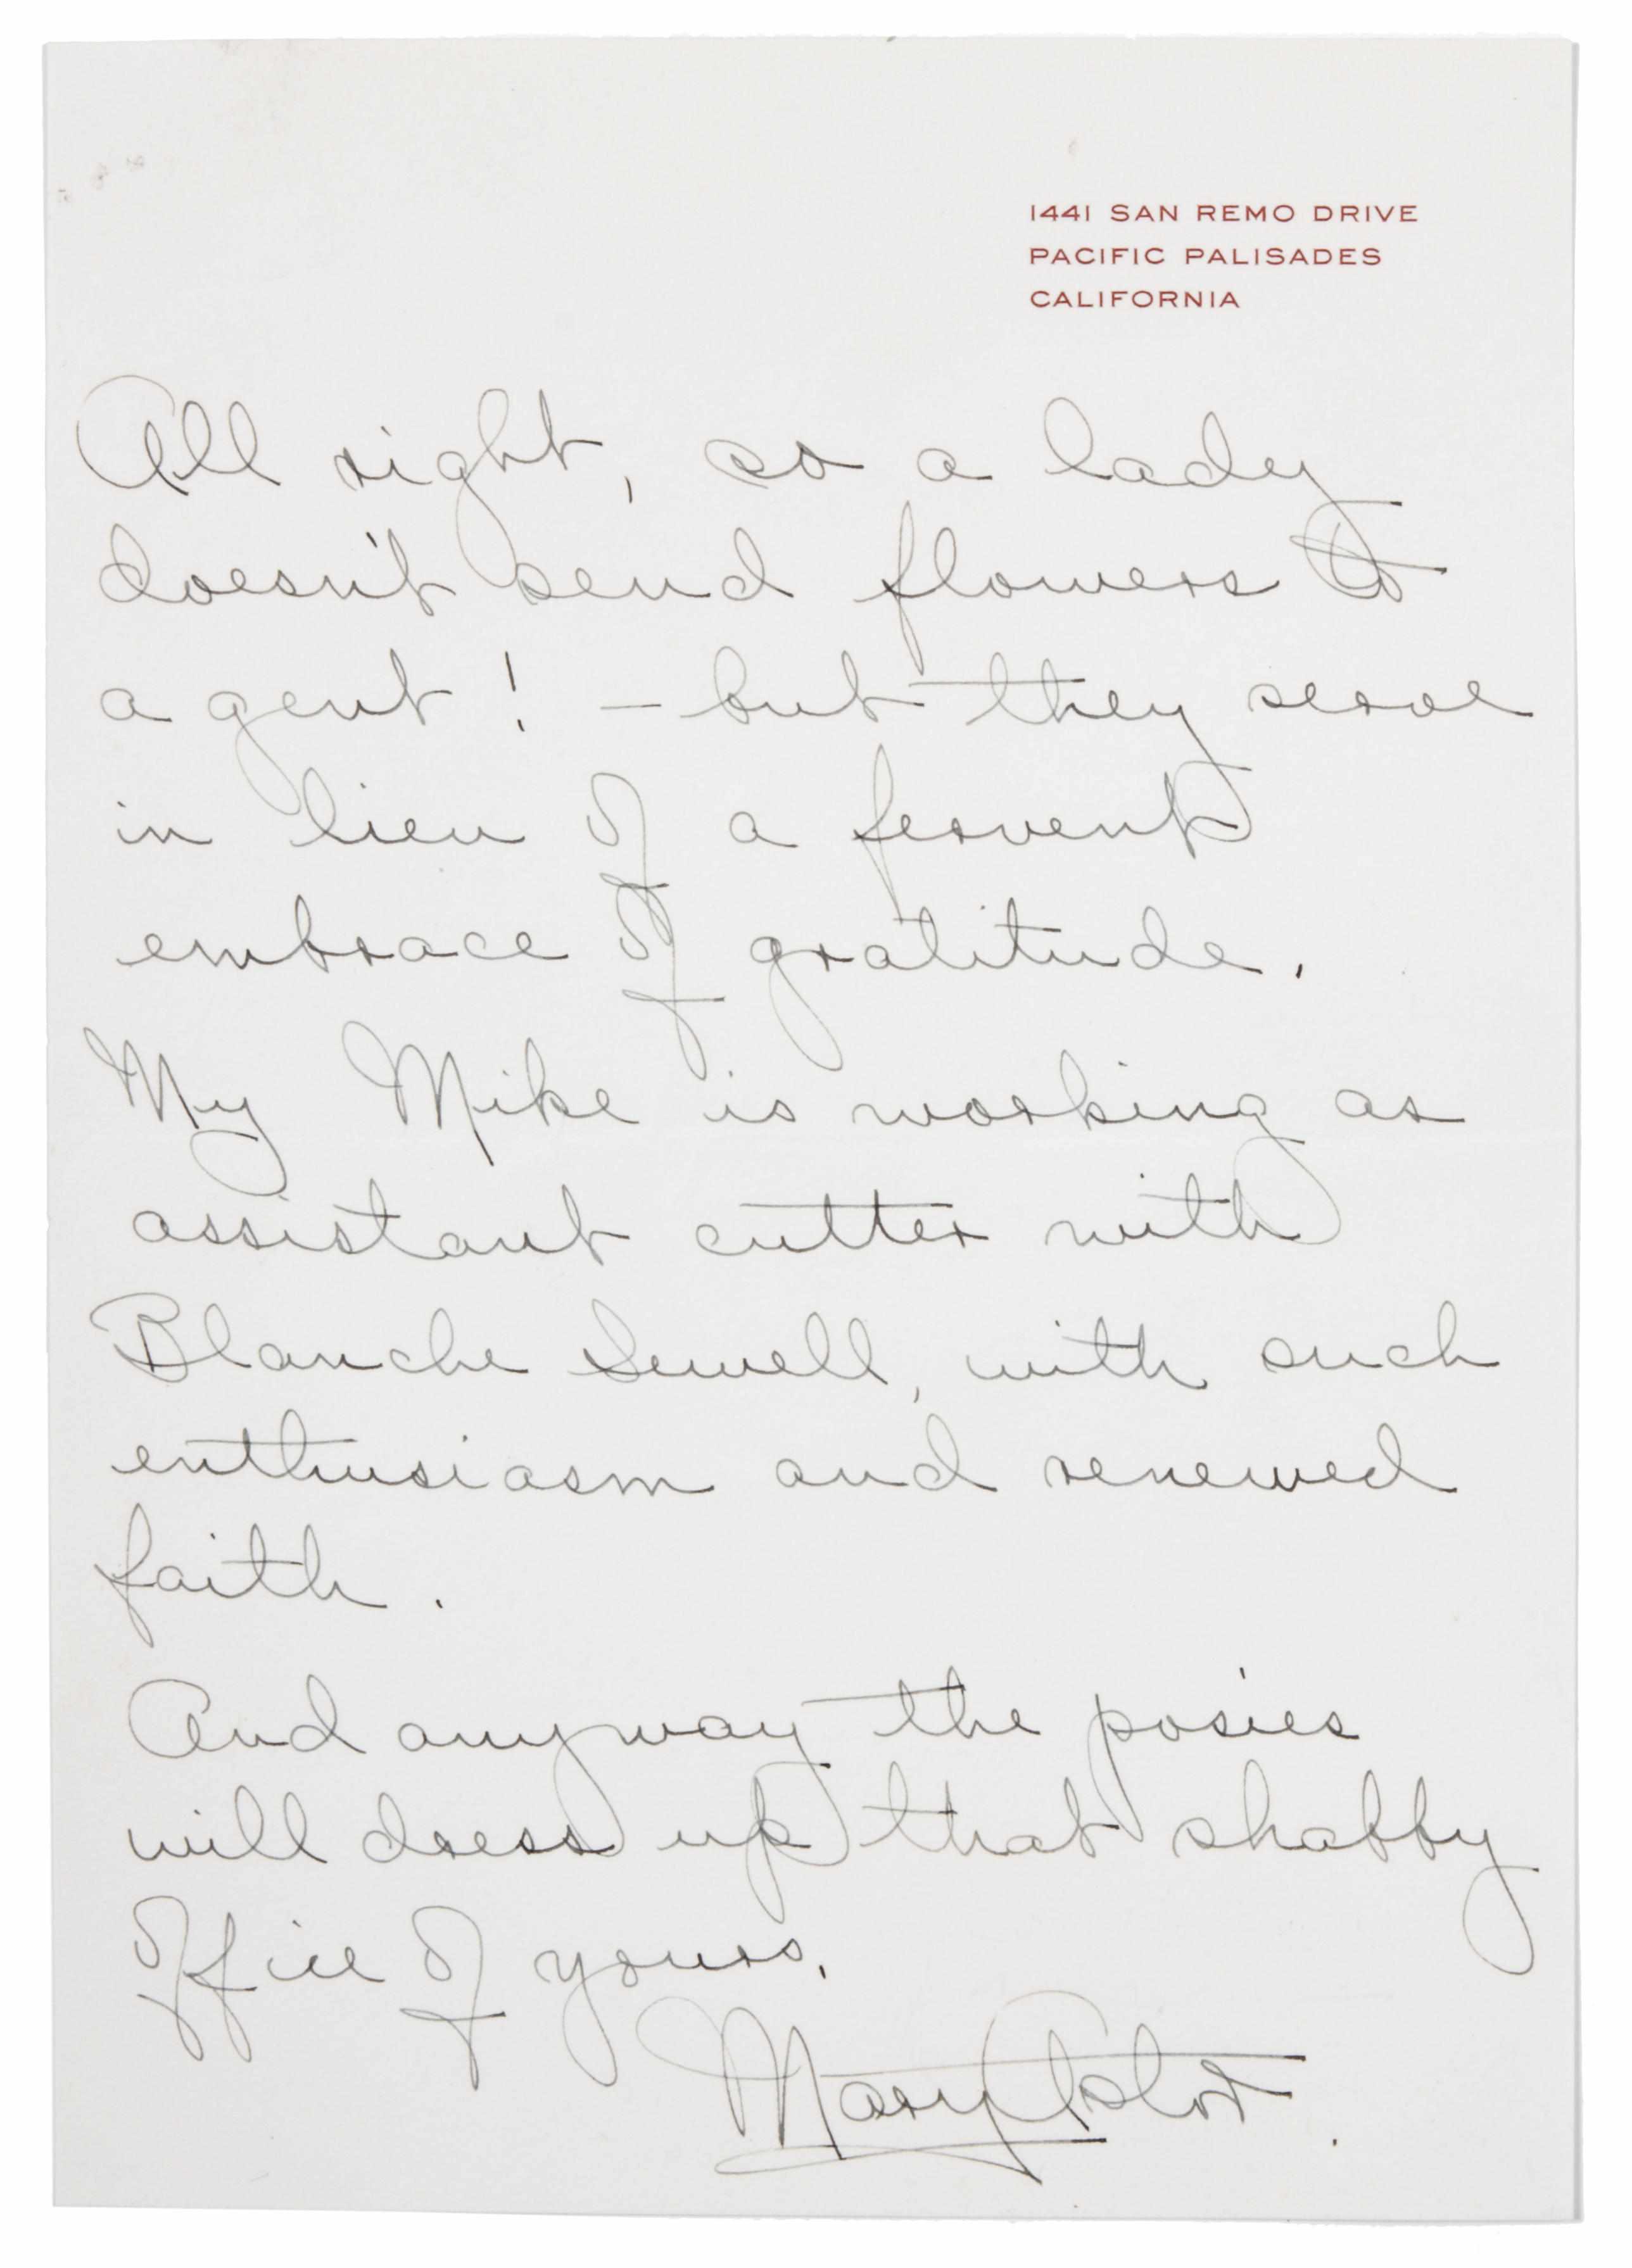 1441 SAN REMO DRIVE
PACIFIC PALISADES
CALIFORNIA
All right, so a lady
doesn't send flowers to
a gent! – but they serve
in lieu of a fervent
embrace of gratitude.
My Mike is working as
assistant cutter with
Blanche Sewell, with such
enthusiasm and renewed
faith.
And anyway the posies
will dress up that shabby
office of yours.
Mary Astor.